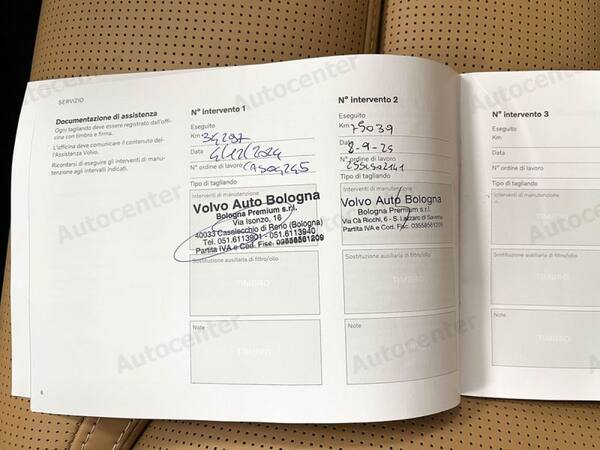 SERVIZIO
Documentazione di assistenza
Ogni tagliando deve essere registrato dall'offi-
cina con timbro e firma.
L'officina deve comunicare il contenuto del-
l'Assistenza Volvo.
Ricordarsi di eseguire gli interventi di manu-
tenzione agli intervalli indicati.
6
N° intervento 1
Eseguito
Km 34297
Data 4/12/2024
N° ordine di lavoro
Tipo di tagliando
Interventi di manutenzione
Volvo Auto Bologna
Bologna Premium s.r.l.
Via Isonzo, 16
40033 Casalecchio di Reno (Bologna)
Tel. 051.6113901 - 051.6113940
Partita IVA e Cod. Fisc. 03558561209
Sostituzione ausiliaria di filtro/olio
TIMBRO
Note
TIMBRO
N° intervento 2
Eseguito
Km 75039
Data 8-9-25
N° ordine di lavoro
Tipo di tagliando
Interventi di manutenzione
Volvo Auto Bologna
Bologna Premium s.r.l.
Via Cà Ricchi, 6 - S. Lazzaro di Savena
Partita IVA e Cod. Fisc. 03558561209
Sostituzione ausiliaria di filtro/olio
TIMBRO
Note
TIMBRO
N° intervento 3
Eseguito
Km
Data
N° ordine di lavoro
Tipo di tagliando
Interventi di manutenzione
TIMBRO
Sostituzione ausiliaria di filtro/olio
TIMBRO
Note
TIMBRO
Autocenter
Autocenter
Autocenter
Autocenter
Autocenter
Autocenter
Autocenter